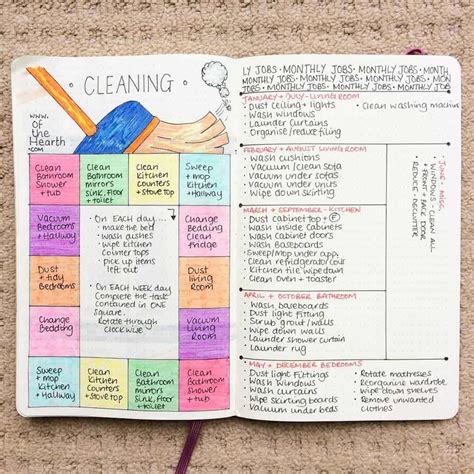 CLEANING
www.
Of the
Hearth
.com
Clean
Bathroom
Shower
+ tub
Clean
Bathroom
mirrors
Sink, floor
+ toilet
Clean
Kitchen
counters
+ stove top
Sweep +
mop
Kitchen
+ Hallway
Vacuum
Bedrooms
+ Hallway
Change
Bedding
Clean
fridge
Dust
+ tidy
Bedrooms
Dust
living
Room
Change
Bedding
Vacuum
Living
Room
Sweep
+ mop
Kitchen
+ Hallway
Clean
Kitchen
Counters
+ stove top
Clean
Bathroom
Mirrors
Sink, floor
+ toilet
Clean
Bathroom
Shower
+ tub
• On EACH day....
• make the bed
• wash dishes
• wipe kitchen
counter tops
• pick up items
left out
• On EACH WEEK day
Complete the task
contained in ONE
square.
Rotate through
clockwise
LY JOBS • MONTHLY JOBS • MONTHLY JOBS • MONTH
MONTHLY JOBS • MONTHLY JOBS • MONTHLY JOBS
JOBS • MONTHLY JOBS • MONTHLY JOBS • MONTHLY JOB
JANUARY + JULY - LIVING ROOM
• Dust Ceiling + lights
• Wash windows
• Launder curtains
• Organise/reduce filing
• Clean washing machine
FEBRUARY + AUGUST LIVING ROOM
• Wash cushions
• Vacuum/clean sofa
• Vacuum under sofas
• Vacuum under units
• Wipe down skirting
MARCH + SEPTEMBER - KITCHEN
• Dust cabinet top + F
• Wash inside cabinets
• Wash cabinet doors
• Wash Baseboards
• Sweep/mop under app
• Clean refridgerato/coils
• Kitchen tile wipe down
• Clean oven + toaster
APRIL + OCTOBER BATHROOM
• Wash baseboards
• Dust light fitting
• Scrub grout/walls
• Wipe down walls
• Launder shower curtain
• Launder rug
MAY + DECEMBER BEDROOMS
• Dust light Fittings
• Wash Windows
• Wash curtains
• Wipe skirting boards
• Vacuum under beds
• Rotate mattresses
• Reorganine wardrobe
• Wipe down shelves
• Remove unwanted
clothes
• JUNE + MISC,
WINDOWS - CLEAN ALL
• FRONT + BACK DOOR
• REDUCE - DECLUTTER